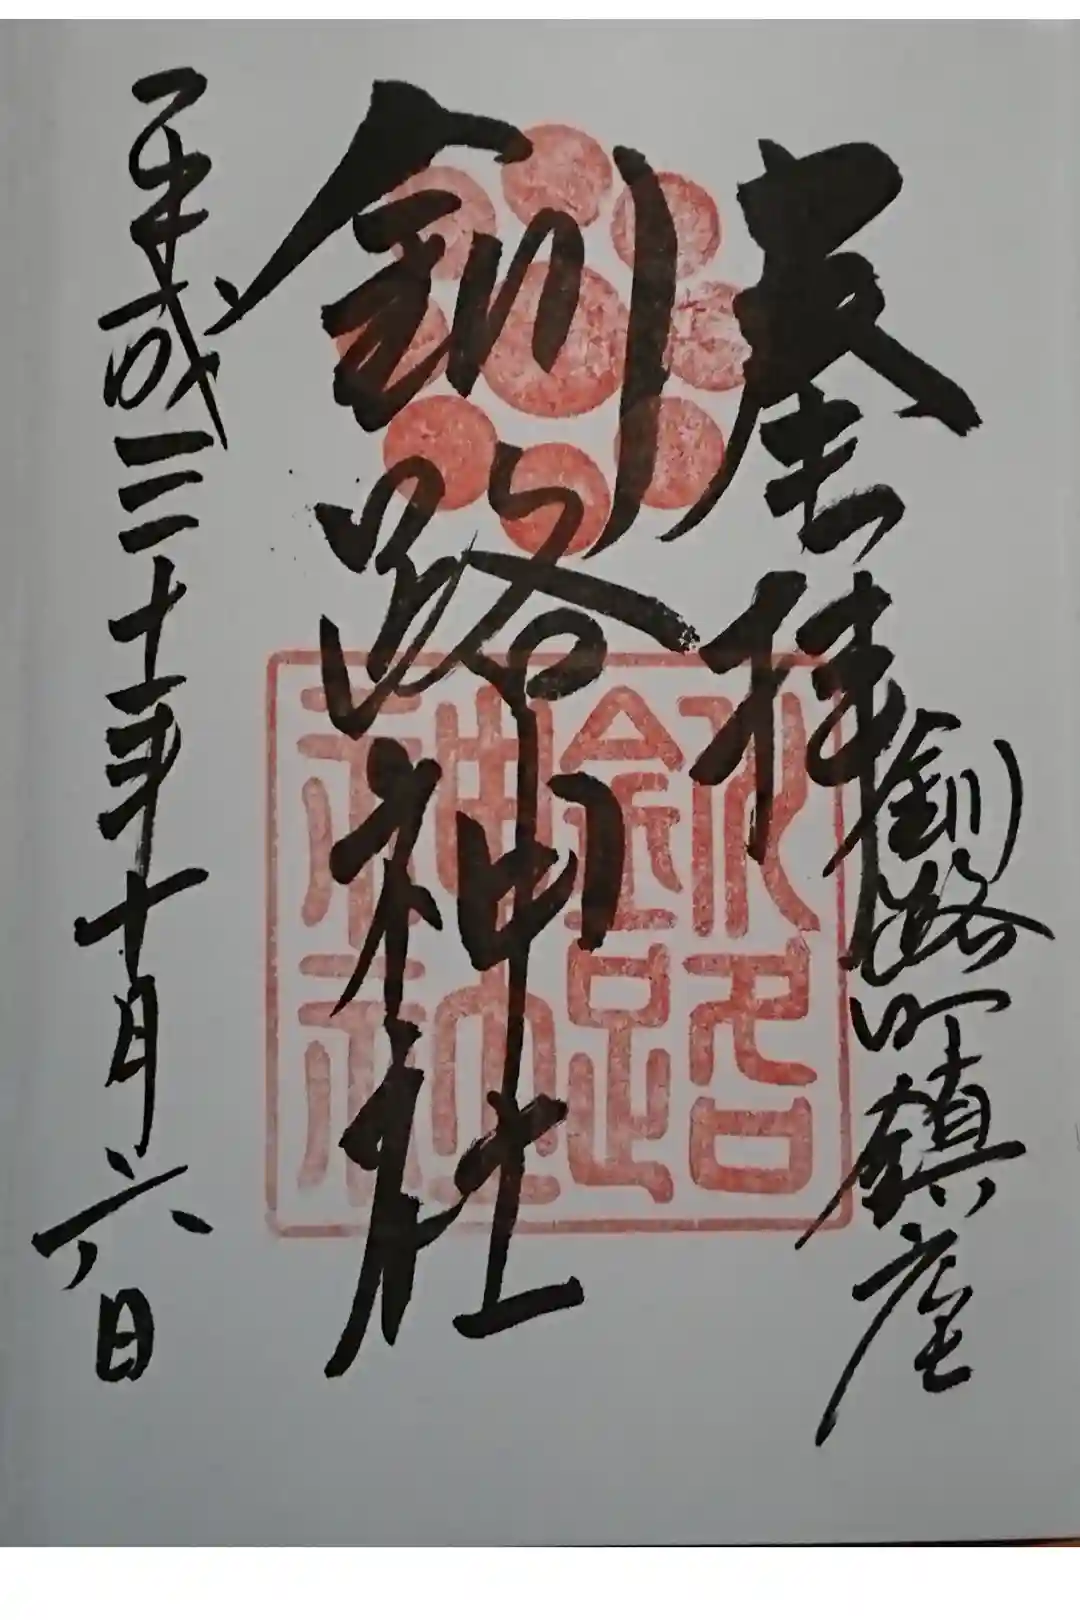 奉拝
釧路町鎮座
釧路神社
釧路
神社
平成三十年十月六日